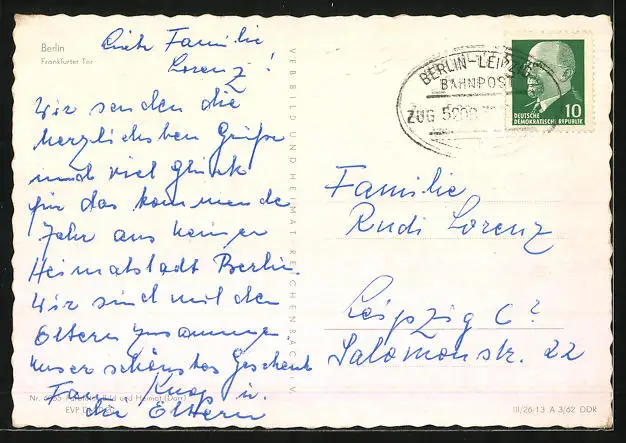 Berlin
Frankfurter Tor
Liebe Familie
Lorenz!
Wir senden die
herzlichsten Grüße
und viel Glück
für das kommende
Jahr aus meiner
Heimatstadt Berlin.
Wir sind mit den
Eltern zusammen.
unser schönstes Geschenk
Fam. Knop u.
die Eltern
VEB BILD UND HEIMAT REICHENBACH I. V.
BERLIN-LEIPZIG
BAHNPOST
ZUG
DEUTSCHE
DEMOKRATISCHE REPUBLIK
10
Familie
Rudi Lorenz
Leipzig C 2
Salomonstr. 22
Bild und Heimat (Darr)
EVP
III/26/13 A 3/62 DDR